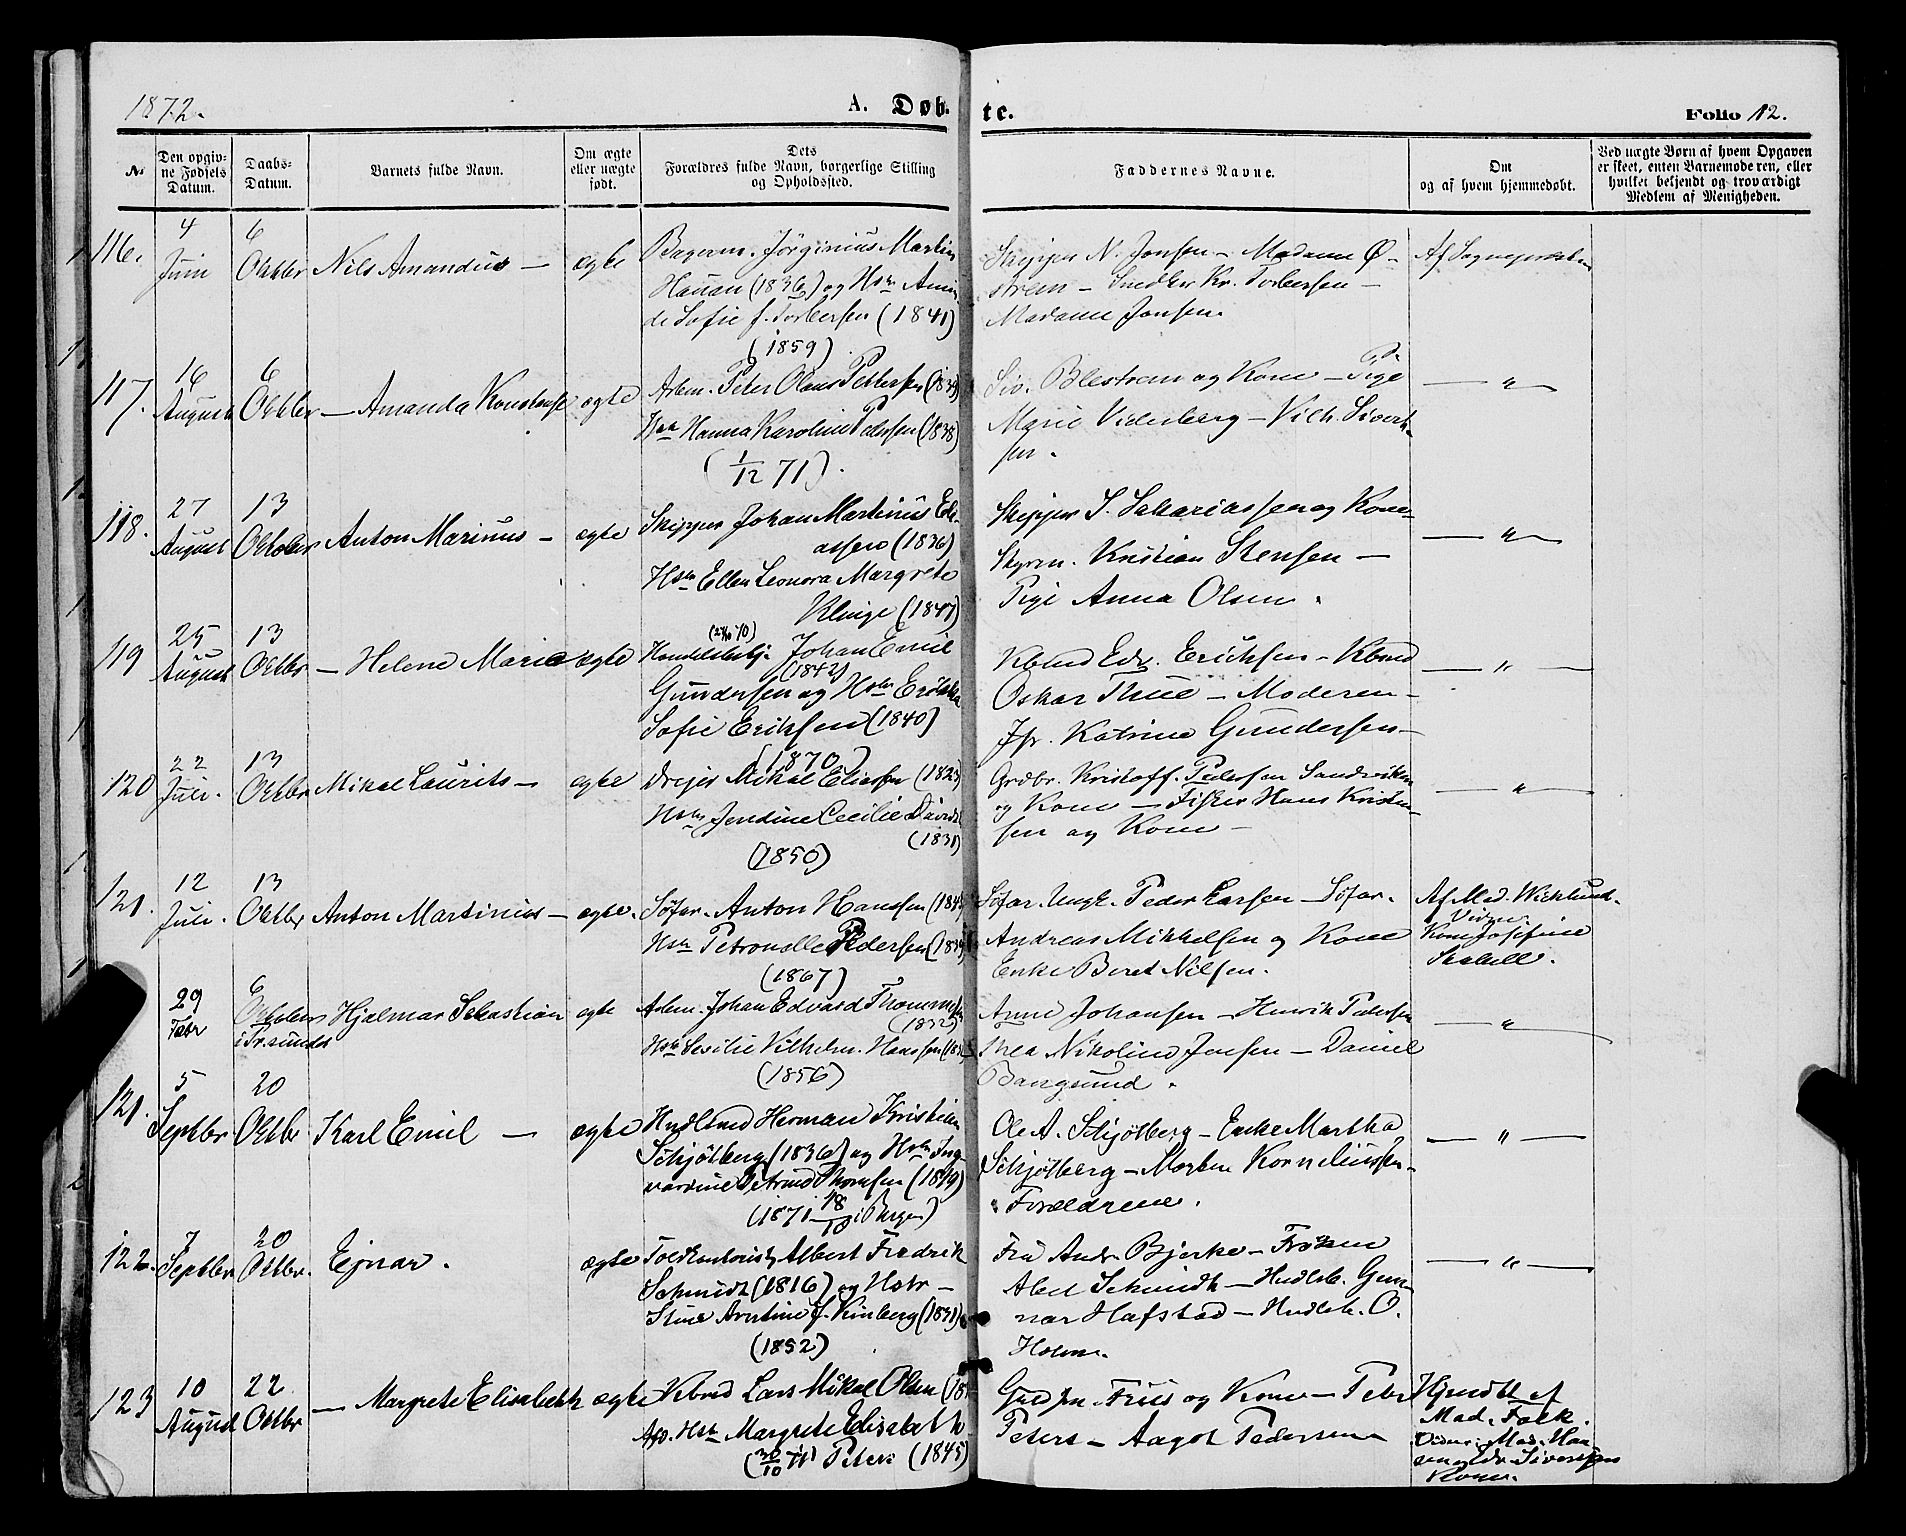 1872.
A. Døb-
te.
Folio 12.
No
Den opgiv-
ne Fødsels
Datum.
Daabs-
Datum.
Barnets fulde Navn.
Om ægte
eller uægte
født.
Dets
Forældres fulde Navn, borgerlige Stilling
og Opholdssted.
Faddernes Navne.
Om
og af hvem hjemmedøbt.
Ved uægte Børn af hvem Opgaven
er skeet, enten Barnemoderen, eller
hvilket bekjendt og troværdigt
Medlem af Menigheden.
116.
4
Juni
6
Oktbr
Nils Amandus —
ægte
Bagerm. Jørginius Martin
Hauan (1836) og Hstr Amin-
de Sofie f. Torbersen (1841)
(1859)
Skipper N. Jensen — Madame Ø-
strem — Snedker Kr. Torbersen —
Madame Jensen.
Af Sognepresten
117.
16
August
6
Oktbr
— Amanda Konstanse
ægte
Arbm. Peter Olaus Pettersen
Hstr Hanna Karoline Pedersen (1838)
(1/12 71).
og Kone — Pige
Marie Viderberg — Vilh. Sivert-
sen.
— " —
118.
27
August
13
Oktober
Anton Marinus —
ægte
Skipper Johan Martinus Eli-
assen (1836)
Hstr Ellen Leonora Margrete
Klinge (1847)
Skipper S. Sakariassen og Kone —
Styrm. Kristian Stensen —
Pige Anna Olsen.
— " —
119
25
August
13
Oktbr
— Helene Marie
ægte
Johan Emil
(1842)
Gundersen og Hstr
Sofie Eriksen (1840)
(1870)
Kbmd Edv. Erichsen — Kbmd
Oskar Thue — Moderen —
Jfr. Katrina Gundersen —
— " —
120
22
Juli.
13
Oktbr
Mikal Laurits —
ægte
Drejer Mikal Eliassen (1823)
Hstr Jendine Cecilie David
(1831)
(1850)
Grdbr. Kristoff. Pedersen Sandviken
og Kone — Fisker Hans Kristen-
sen og Kone —
— " —
121.
12
Juli.
13
Oktbr
Anton Martinius —
ægte.
Søfar. Anton Hanssen
Hstr Petronelle Pedersen
(1867)
Søfar. Ungk. Peder Larsen — Søfar.
Andreas Mikkelsen og Kone
Enke Beret Nilsen.
Af Mad. Wicklund.
Vidne
Kone Josefine
29
Febr
6
Oktober
i Tr.sundet
Hjalmar Sebastian
ægte
Arbm. Johan Edvard Thommesen
(1832)
Hstr Sesilie Vilhelm. Hanssen
(1856)
Anne Johansen — Henrik Pedersen
Thea Nikoline Jensen — Daniel
Bangsund.
— " —
121.
5
Septbr
20
Oktbr
Karl Emil —
ægte
Hndlsmd Herman Kristian
Schjølberg (1836) og Hstr Ing-
vardine Petrine Thomsen (1849)
(1871 18/10 i Bergen)
Ole A. Schjølberg — Enke Martha
Schjølberg — Morten Korneliussen —
Forældrene.
— " —
122.
7
Septbr
20
Oktbr.
Ejnar.
ægte
Toldkontorist Albert Fredrik
Schmidt (1816) og Hstr —
Stine f. Kinberg (1831)
(1852)
Fru Andr. Bjerke — Frøken
Abel Schmidt — Hndlsb. Gun-
nar Hafstad — Hndlsb. O.
Holm.
— " —
123
10
August
22
Oktbr
— Margrete Elisabeth
ægte
Kbmd Lars Mikal Olsen
Afd. Hstr Margrete Elisabeth
(30/10 71) Peters (1845)
Guldsm. Friis og Kone — Peter
Peters — Aagot Pedersen
Hjemdbt af
Mad. Falk.
Vidne: Mad. Han-
Siversens
Kone.